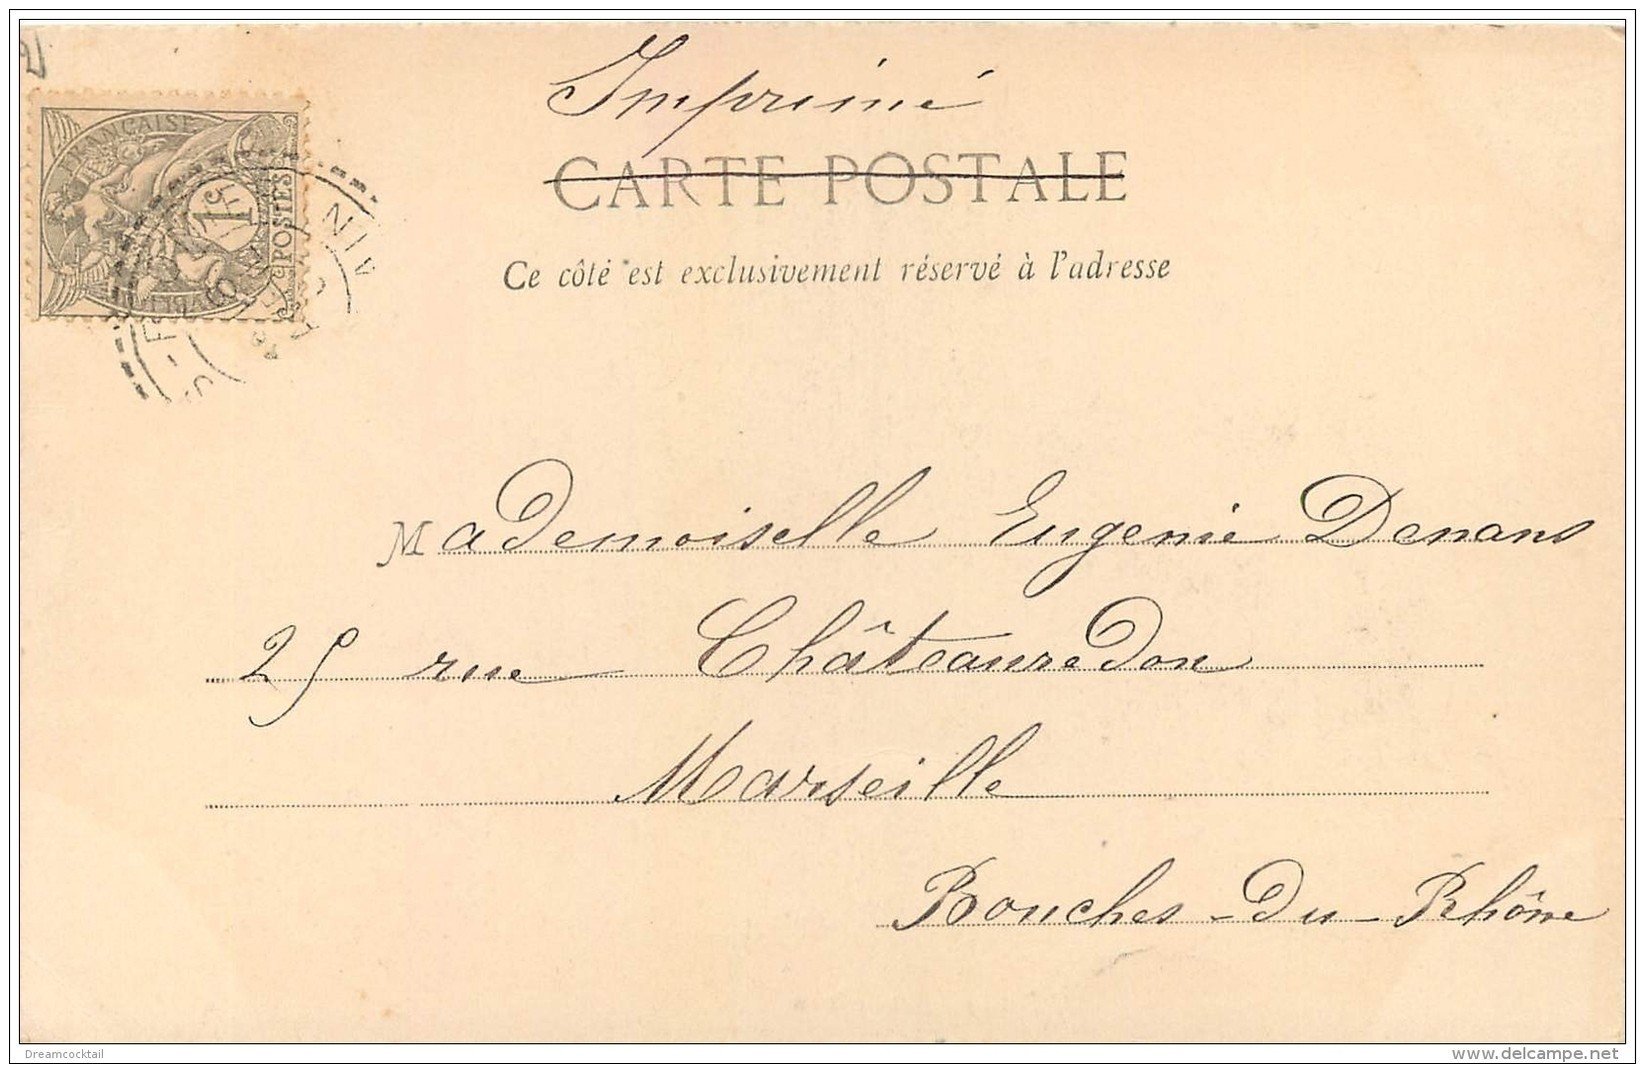 Imprimé
CARTE POSTALE
Ce côté est exclusivement réservé à l'adresse
FRANÇAISE
POSTES
1
AIN
Mademoiselle Eugenie Denans
25 rue Châteauredon
Marseille
Bouches-du-Rhône
Dreamcocktail
www.delcampe.net